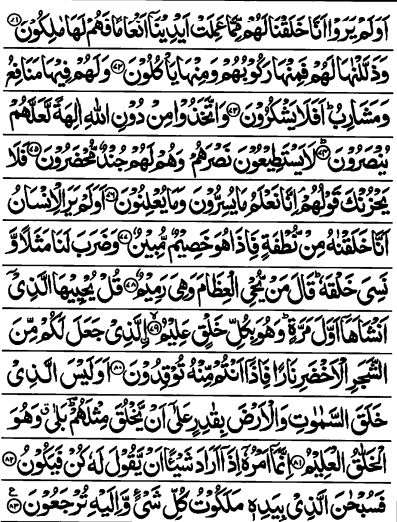 اَوَلَمْ يَرَوْا اَنَّا خَلَقْنَا لَهُمْ مِّمَّا عَمِلَتْ اَيْدِيْنَاۤ اَنْعَامًا فَهُمْ لَهَا مٰلِكُوْنَ ﴿۷۱﴾
وَذَلَّلْنٰهَا لَهُمْ فَمِنْهَا رَكُوْبُهُمْ وَمِنْهَا يَاْكُلُوْنَ ﴿۷۲﴾ وَلَهُمْ فِيْهَا مَنَافِعُ
وَمَشَارِبُ ؕ اَفَلَا يَشْكُرُوْنَ ﴿۷۳﴾ وَاتَّخَذُوْا مِنْ دُوْنِ اللّٰهِ اٰلِهَةً لَّعَلَّهُمْ
يُنْصَرُوْنَ ﴿۷۴﴾ لَا يَسْتَطِيْعُوْنَ نَصْرَهُمْ ۙ وَهُمْ لَهُمْ جُنْدٌ مُّحْضَرُوْنَ ﴿۷۵﴾ فَلَا
يَحْزُنْكَ قَوْلُهُمْ ۘ اِنَّا نَعْلَمُ مَا يُسِرُّوْنَ وَمَا يُعْلِنُوْنَ ﴿۷۶﴾ اَوَلَمْ يَرَ الْاِنْسَانُ
اَنَّا خَلَقْنٰهُ مِنْ نُّطْفَةٍ فَاِذَا هُوَ خَصِيْمٌ مُّبِيْنٌ ﴿۷۷﴾ وَضَرَبَ لَنَا مَثَلًا وَّ
نَسِيَ خَلْقَهٗ ؕ قَالَ مَنْ يُّحْيِ الْعِظَامَ وَهِيَ رَمِيْمٌ ﴿۷۸﴾ قُلْ يُحْيِيْهَا الَّذِيْۤ
اَنْشَاَهَاۤ اَوَّلَ مَرَّةٍ ؕ وَهُوَ بِكُلِّ خَلْقٍ عَلِيْمٌ ﴿۷۹﴾ ۙ الَّذِيْ جَعَلَ لَكُمْ مِّنَ
الشَّجَرِ الْاَخْضَرِ نَارًا فَاِذَاۤ اَنْتُمْ مِّنْهُ تُوْقِدُوْنَ ﴿۸۰﴾ اَوَلَيْسَ الَّذِيْ
خَلَقَ السَّمٰوٰتِ وَالْاَرْضَ بِقٰدِرٍ عَلٰۤى اَنْ يَّخْلُقَ مِثْلَهُمْ ؕ بَلٰى ۗ وَهُوَ
الْخَلّٰقُ الْعَلِيْمُ ﴿۸۱﴾ اِنَّمَاۤ اَمْرُهٗۤ اِذَاۤ اَرَادَ شَيْئًا اَنْ يَّقُوْلَ لَهٗ كُنْ فَيَكُوْنُ ﴿۸۲﴾
فَسُبْحٰنَ الَّذِيْ بِيَدِهٖ مَلَكُوْتُ كُلِّ شَيْءٍ وَّاِلَيْهِ تُرْجَعُوْنَ ﴿۸۳﴾ ع